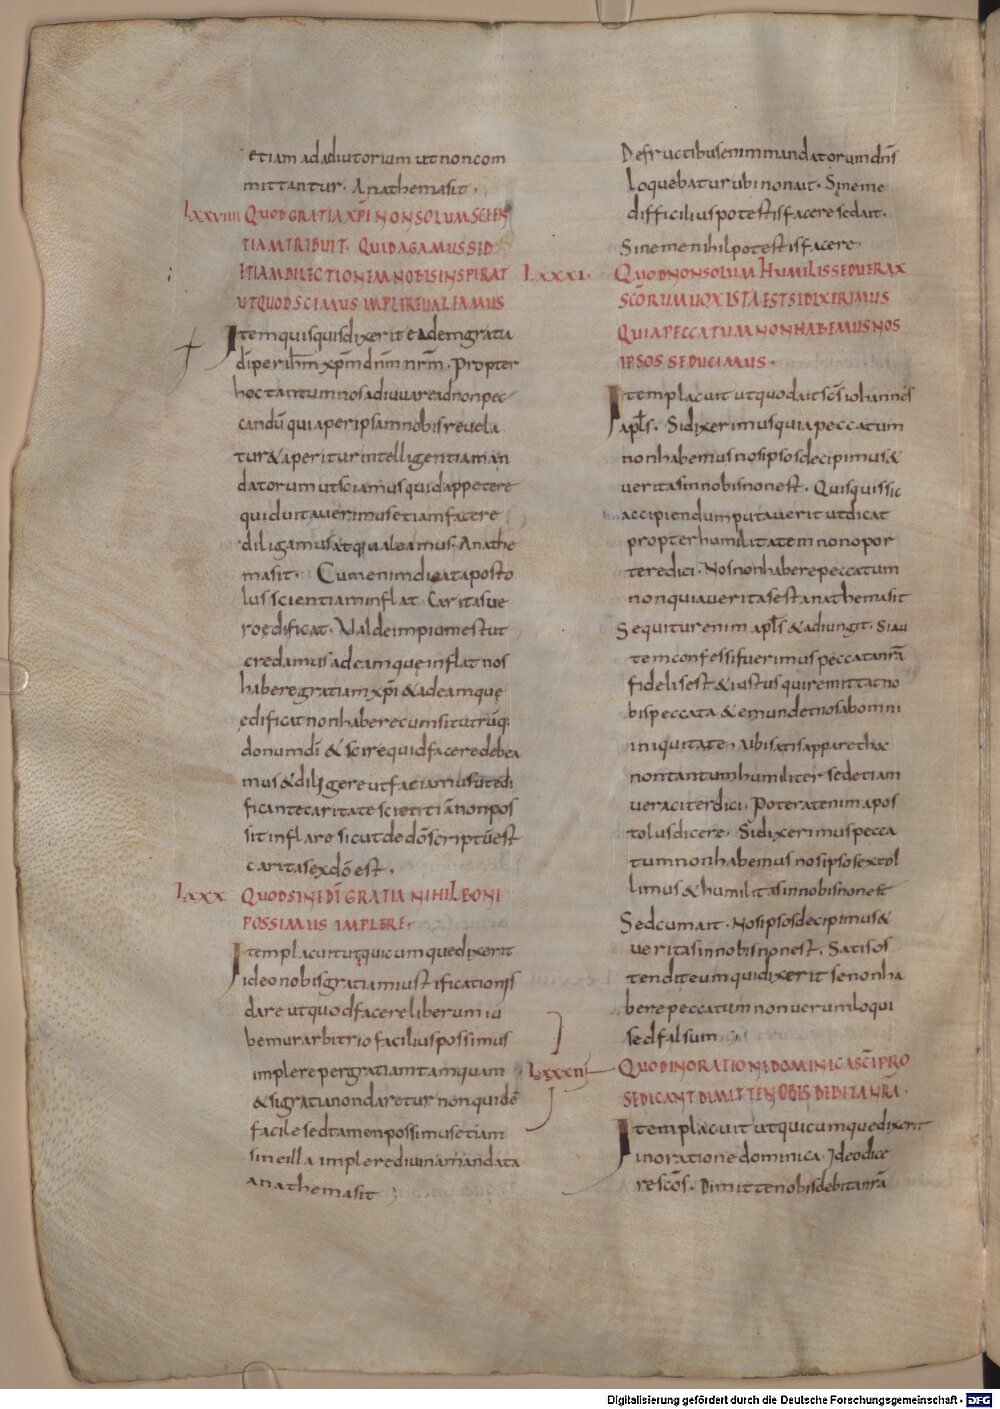 etiam ad adiutorium ut non com
mittantur. Anathema sit.
LXXVIIII QUOD GRATIA XPI NON SOLUM SCIEN
TIAM TRIBUIT. QUID AGAMUS SED
ETIAM DILECTIONEM NOBIS INSPIRAT
UT QUOD SCIMUS IMPLERE UALEAMUS
Item quisquis dixerit eadem gratia
dī per ihm xpm dnm nrm. Propter
hoc tantum nos adiuuare ad non pec
candū quia per ipsam nobis reuela
tur & aperitur intelligentia man
datorum ut sciamus quid appetere
quid uitauerimus etiam facere
diligamus atq; ualeamus. Anathe
ma sit. Cum enim dicat aposto
lus scientiam inflat. Caritas ue
ro ędificat. Ualde impium est ut
credamus ad eam quę inflat nos
habere gratiam xpi & ad eam quę
ędificat non habere cum sit utrūq;
donum dī & scire quid facere debea
mus & diligere ut faciamus ut edi
ficante caritate scientiā non pos
sit inflare sicut de dō scriptū est
caritas ex dō est.
LXXX QUOD SINE DĪ GRATIA NIHIL BONI
POSSIMUS IMPLERE.
Item placuit ut quicumque dixerit
ideo nobis gratiam iustificationis
dare ut quod facere liberum iu
bemur arbitrio facilius possimus
implere per gratiam tamquam
& si gratia non daretur non quidē
facile sed tamen possimus etiam
sine illa implere diuina mandata
anathema sit
De fructibus enim mandatorum dns
loquebatur ubi non ait. Sine me
difficilius potestis facere sed ait.
Sine me nihil potestis facere.
LXXXI. QUOD NON SOLUM HUMILIS SED UERAX
SCŌRUM UOX ISTA EST SI DIXERIMUS
QUIA PECCATUM NON HABEMUS NOS
IPSOS SEDUCIMUS.
Item placuit ut quod ait scs iohannes
apls. Si dixerimus quia peccatum
non habemus nos ipsos decipimus &
ueritas in nobis non est. Quisquis sic
accipiendum putauerit ut dicat
propter humilitatem non opor
tere dici. Nos non habere peccatum
non quia ueritas est anathema sit
Sequitur enim apls & adiungit. Si au
tem confessi fuerimus peccata nrā
fidelis est & iustus qui remittat no
bis peccata & emundet nos ab omni
iniquitate. Ubi satis apparet hoc
non tantum humiliter sed etiam
ueraciter dici. Poterat enim apos
tolus dicere. Si dixerimus pecca
tum non habemus nos ipsos extol
limus & humilitas in nobis non est
Sed cum ait. Nos ipsos decipimus &
ueritas in nobis non est. Satis os
tendit eum qui dixerit se non ha
bere peccatum non uerum loqui
sed falsum
LXXXII QUOD IN ORATIONE DOMINICA SCĪ PRO
SE DICANT DIMITTE NOBIS DEBITA NRĀ.
Item placuit ut quicumque dixerit
in oratione dominica. Ideo dice
re scōs. Dimitte nobis debita nrā
Digitalisierung gefördert durch die Deutsche Forschungsgemeinschaft - DFG